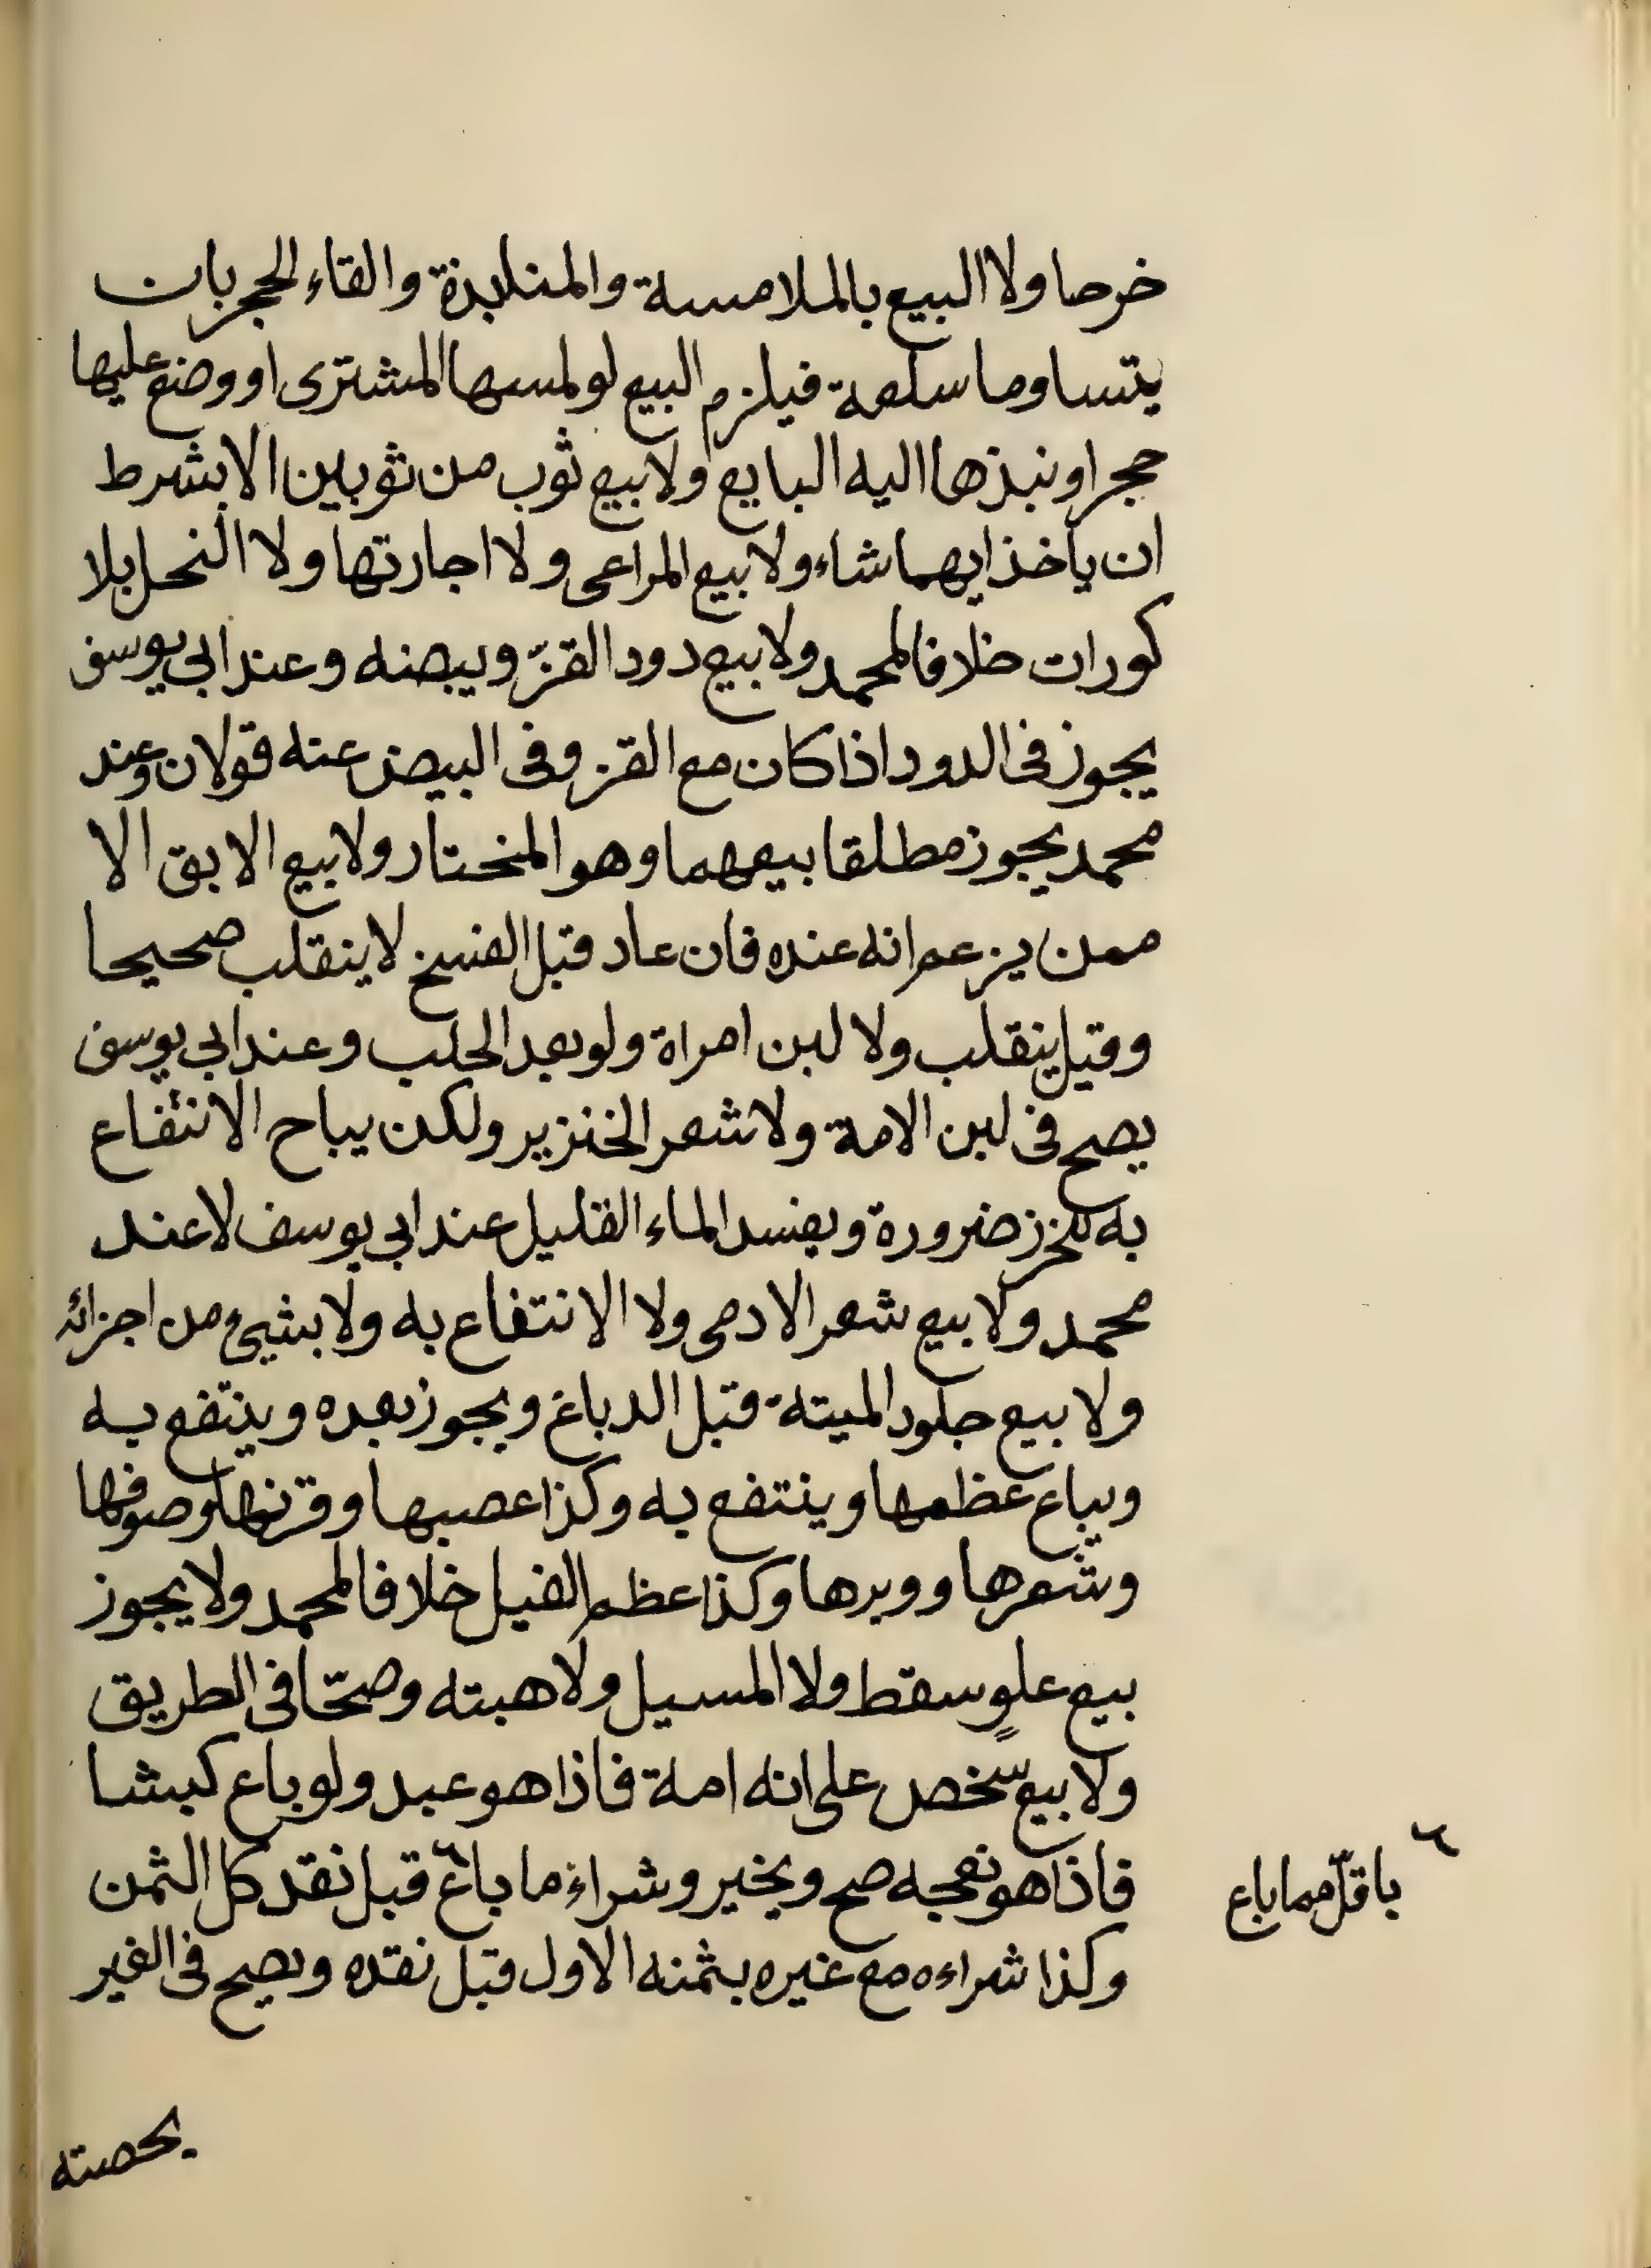 خرصا ولا البيع بالملامسة والمنابذة والقاء الحجر بان
يتساوما سلعة فيلزم البيع لو لمسها المشترى او وضع عليها
حجرا او نبذها اليه البايع ولا بيع ثوب من ثوبين الا بشرط
ان ياخذ ايهما شاء ولا بيع المراعى ولا اجارتها ولا النحل بلا
كورات خلافا لمحمد ولا بيع دود القزّ وبيضه وعند ابي يوسف
يجوز فى الدود اذا كان مع القز وفى البيض عنه قولان وعند
محمد يجوز مطلقا بيعهما وهو المختار ولا بيع الابق الا
ممن يزعم انه عنده فان عاد قبل الفسخ لا ينقلب صحيحا
وقيل ينقلب ولا لبن امراة ولو بعد الحلب وعند ابي يوسف
يصح فى لبن الامة ولا شعر الخنزير ولكن يباح الانتفاع
به للخرز ضرورة ويفسد الماء القليل عند ابي يوسف لا عند
محمد ولا بيع شعر الادمى ولا الانتفاع به ولا بشيئ من اجزائه
ولا بيع جلود الميتة قبل الدباغ ويجوز بعده وينتفع به
ويباع عظمها وينتفع به وكذا عصبها وقرنها وصوفها
وشعرها ووبرها وكذا عظم الفيل خلافا لمحمد ولا يجوز
بيع علوٍ سقط ولا المسيل ولا هبته وصحّا فى الطريق
ولا بيع شخص على انه امة فاذا هو عبد ولو باع كبشا
فاذا هو نعجه صح ويخير وشراء ما باع٦ قبل نقد كل الثمن
وكذا شراءه مع غيره بثمنه الاول قبل نقده ويصح فى الغير
٦
باقلّ مما باع
بحصته